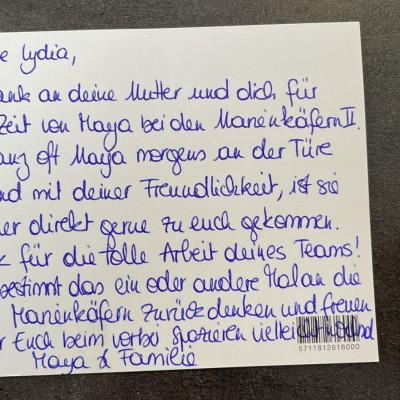 e Lydia,
ank an deine Mutter und dich für
Zeit von Maya bei den Marienkäfern II.
anz oft Maya morgens an der Türe
nd mit deiner Freundlichkeit, ist sie
er direkt gerne zu euch gekommen.
k für die tolle Arbeit deines Teams!
bestimmt das ein oder andere Mal an die
Marienkäfern zurück denken und freuen
r Euch beim vorbei spazieren
Maya & Familie
5711812616000